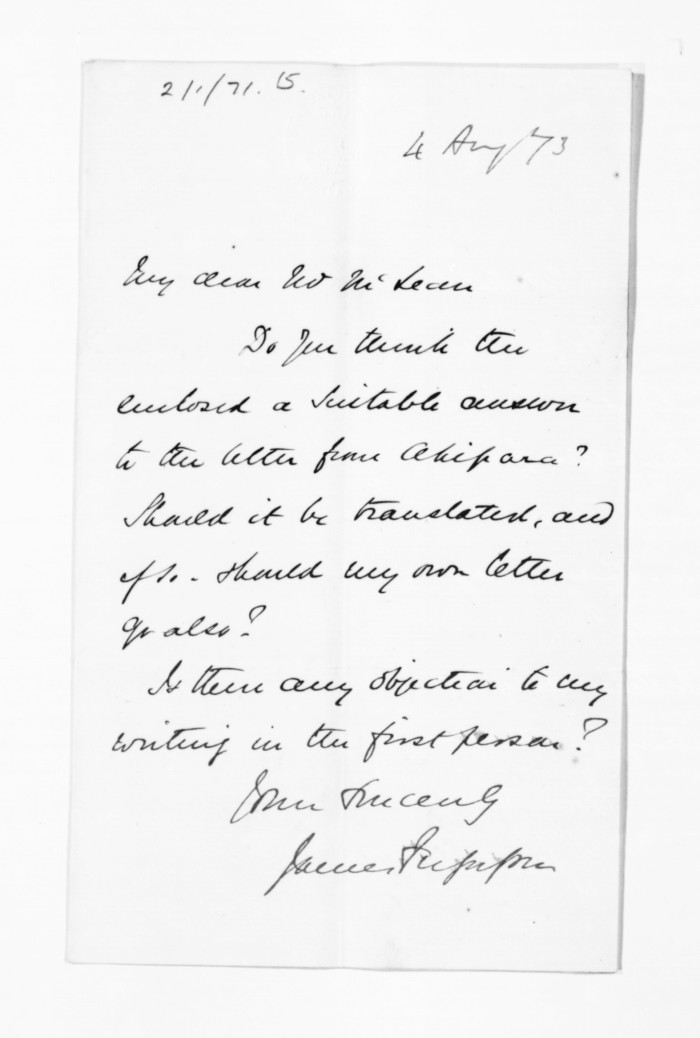 2/1/71. 15.
4 Aug/73
My dear Mr McLean
Do you think the
enclosed a suitable answer
to the letter from Ahipara?
Should it be translated, and
if so - should my own letter
go also?
Is there any objection to my
writing in the first person?
Yours sincerely
James Fergusson